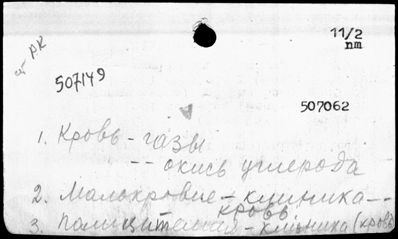 11/2
пт
РК
507149
507062
1. Кровь - газы
-- окись углерода
2. Малокровие - клиника --
кровь
3. Полицитемия - клиника (кровь